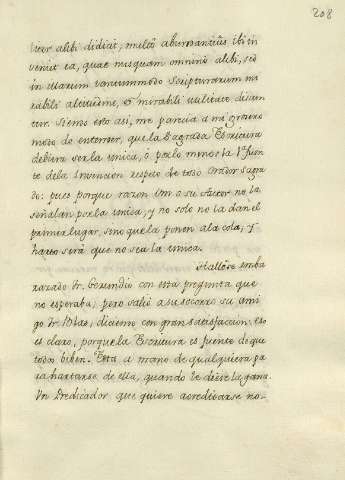 208
liter alibi didicit, multò abundantiùs ibi in
venit ea, quae nusquam omninò alibi, sed
in illarum tantummodo Scripturarum mi
rabili altitudine, & mirabili
tur. Siendo esto asi, me parecia a mi grosero
modo de entender, que la Sagrada Escritura
debiera ser la unica, ò por lo menos la 1ª fuen
te de la Invencion respeto de todo Orador sagra
do: pues porque razon Vm a su Autor no la
señalan por la unica; y no solo no la dan el
primer lugar, sino que la ponen a la cola; y
harto será que no sea la unica.
Hallòse emba
razado Fr. Gerundio con esta pregunta que
no esperaba; pero saliò a su socorro su ami
go Fr. Blas, diciendo con gran satisfaccion: eso
es claro, porque la Escritura es fuente de que
todos beben. Està a mano de qualquiera pa
ra hartarse de ella, quando le diere la gana.
Un Predicador que quiere acreditarse no-